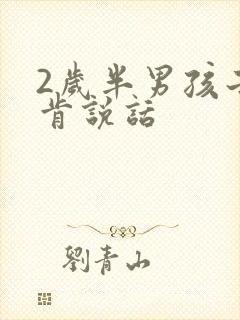 2歲半男孩不
肯說話
劉青山